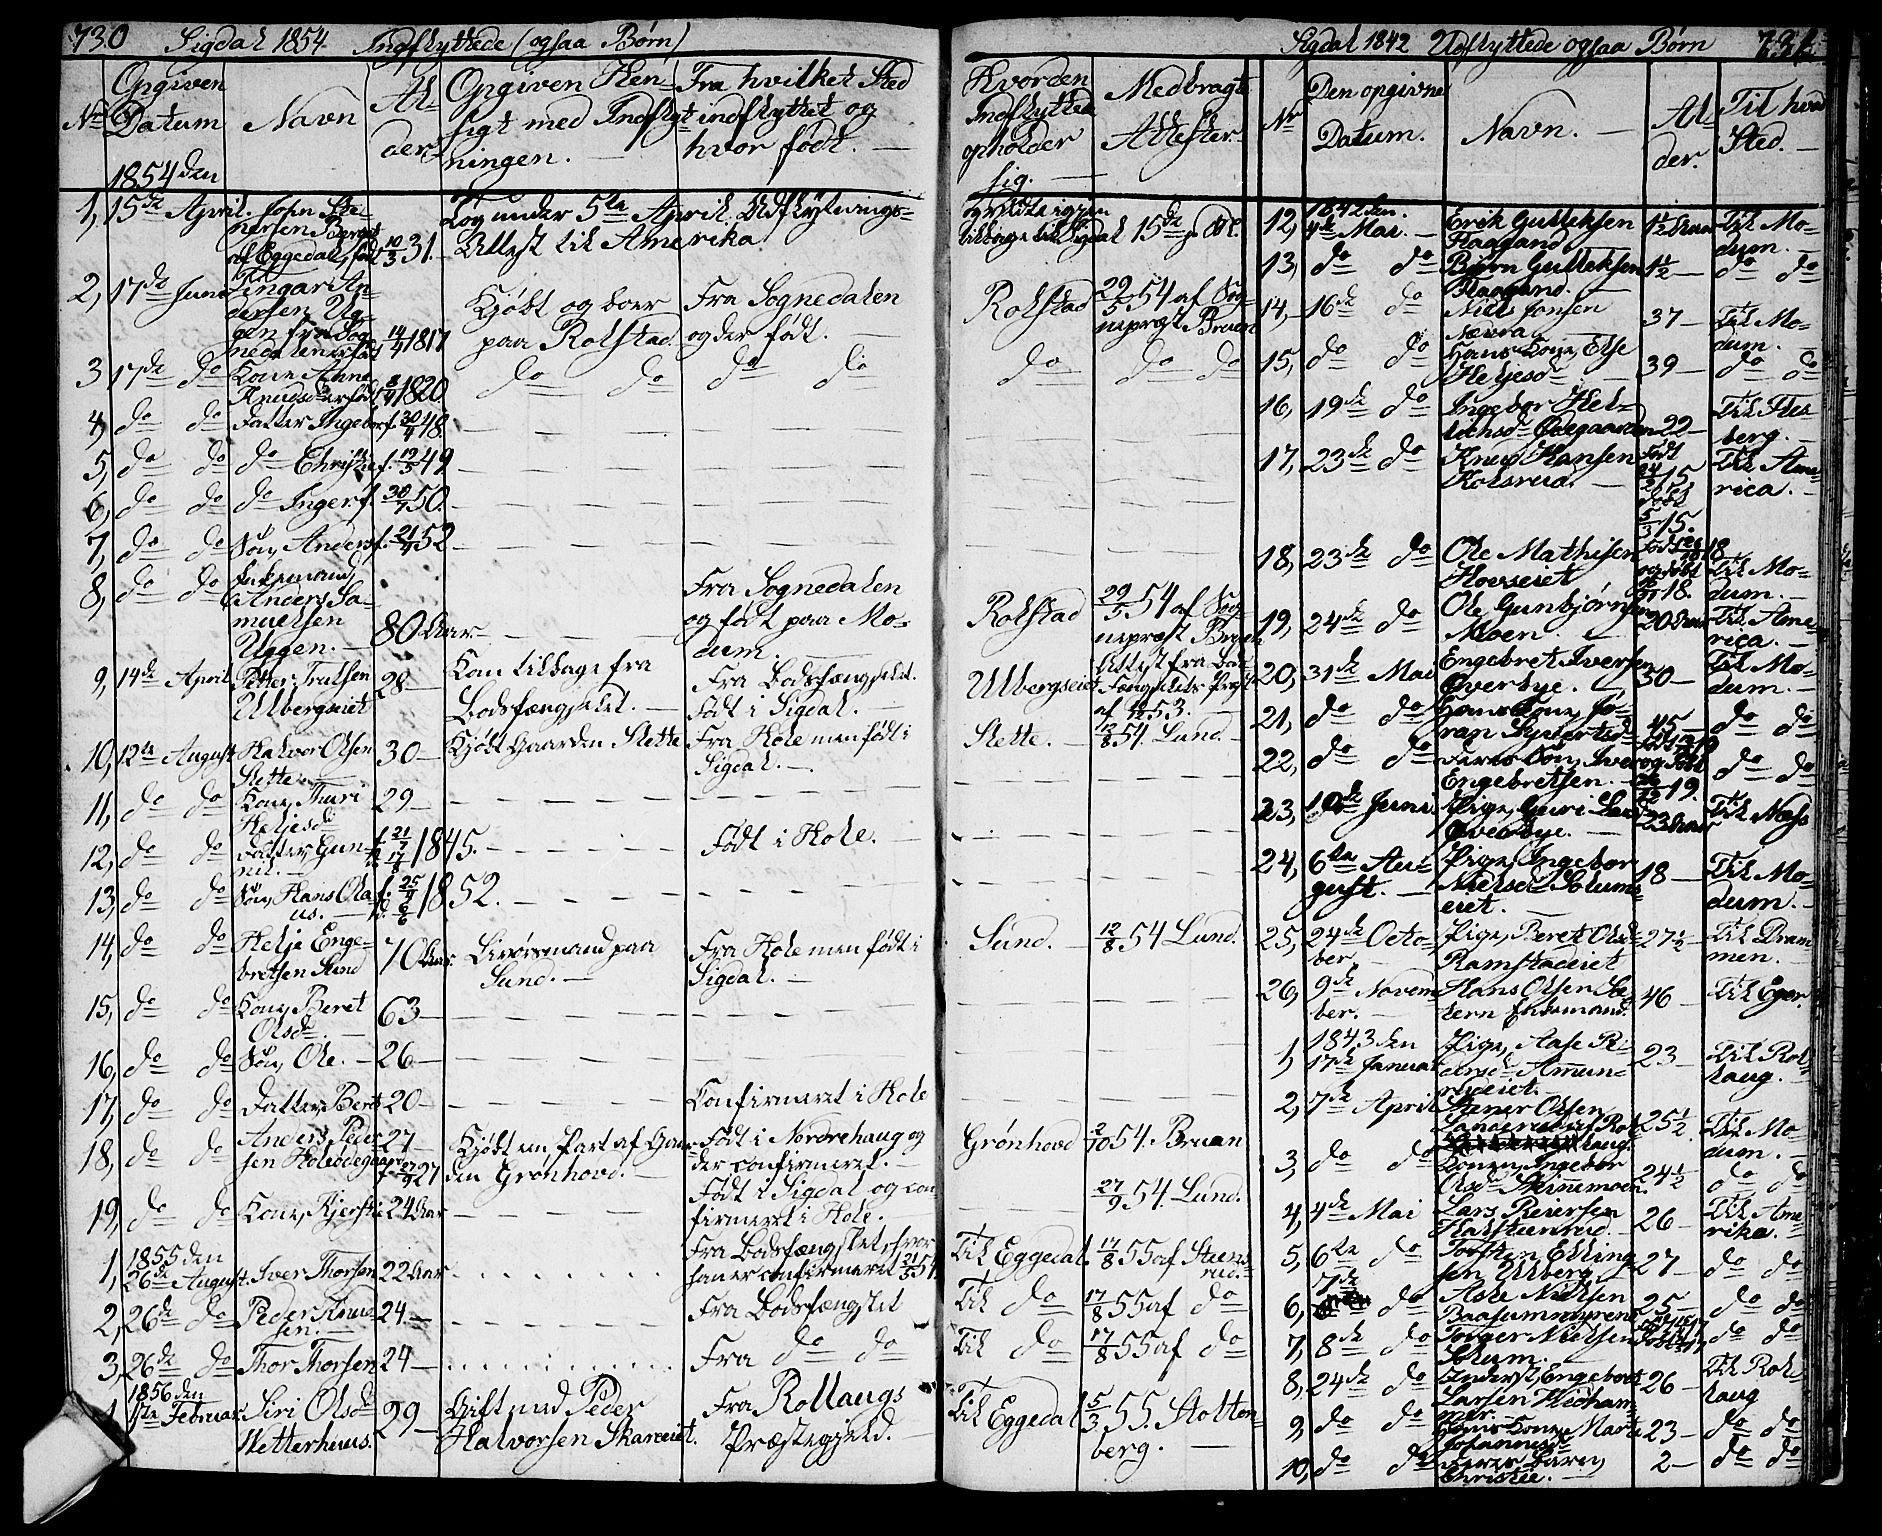 730 Sigdal 1854 Indflyttede (ogsaa Børn)
Nr Opgiven Datum 1854 den
Navn
Alder
Opgiven Hensigt med Indflytningen.
Fra hvilket Sted indflyttet og hvor født.
Hvorden Indflyttede opholder sig.
Medbragt Attester.
1, 15de April. John Stenersen Berget af Eggedal, født 10/3 31. Tog under 5te April Udflytnings-
Attest til Amerika
og flyttede igjen tilbage til Sigdal 15de
2, 17de Juni Tingar Andersen Uggen fra Sognedalen født 14/4 1817 Kjøbt og boer paa Rolstad Fra Sognedalen og der født. Rolstad 29/5 54 af Sognepræst Bruun
3 17de do Kone Anne Knudsd. født 8/4 1820 do do do do do do do
4, do do Datter Ingebor f. 30/4 48.
5, do do do Christie f. 12/5 49
6, do do do Inger f. 30/7 50.
7, do do Søn, Anders f. 21/4 52
8, do do Enkemand Anders Samuelsen Uggen. 80 Aar Fra Sognedalen og født paa Modum. Rolstad 29/5 54 af Sognepræst Bruun
9, 14de April Petter Trulsen Ulbergseiet 28 Kom tilbage fra Bodsfængslet. Fra Bodsfængslet. Født i Sigdal. Ulbergseiet Attest fra Bodsfængslets Præst af 53.
10, 12te August Halvor Olsen Slette 30 Kjøbt Gaarden Slette Fra Hole men født i Sigdal. Slette. 12/8 54. Lund
11, do do Kone, Thuri Helgesd 29
12, do do Datter Gunnil. f. 21/7 1845. Født i Hole.
13, do do Søn, Hans Olaus. f. 25/9 1852.
14, do do Helje Engebretsen Lund 70 Aar. Livørsmand paa Lund. Fra Hole men født i Sigdal. Lund. 12/8 54 Lund.
15, do do Kone, Beret Olsd. 63
16, do do Søn, Ole. 26
17, do do Datter, Berit 20 Confirmeret i Hole
18, do do Anders Pedersen 27 Kjøbt en Part af Gaarden Grønhovd. Født i Nordrehaug og der confirmeret. Grønhovd 2/10 54. Bruun
19, do do Kone, Kjersti 24 Aar Født i Sigdal og confirmeret i Hole. 27/9 54. Lund.
1855 den
1, 26de August. Iver Thorsen 22 Aar Fra Bodsfængslet, hvor han er confirmeret 21/5 54. Til Eggedal. 17/8 55 af Steensrud.
2, 26de do Peder Knudsen. 24 Fra Bodsfængslet Til do 17/8 55 af do
3, 26de do Thor Thorsen 24 Fra do do Til do 17/8 55 af do
1856 den
1, 1ste Februar Siri Olsd Wetterhuus. 29 Gift med Peder Halvorsen Skareeiet. Fra Rollaugs Præstegjeld. Til Eggedal 5/3 55. Stoltenberg.
Sigdal 1842 Udflyttede ogsaa Børn 731
Nr Den opgivne Datum. Navn. Alder. Til hvad Sted.
1842 den.
12, 4de Mai. Erik Gulleksen Haagand 1½ Aar Til Modum.
13, do do Bjørn Gulleksen Haagand. 1½ do do
14, 16de do Niels Jonsen Nævra 37 Til Modum.
15, do do Hans Kone, Else Helgesd 39 do do
16, 19de do Ingebor Helliksd. Ødegaarden 22 Til Flesberg.
17, 23de do Knud Hansen Kolsrud. født 15 døbt 5/3 15. Til America.
18, 23de do Ole Mathisen Hovseiet født 1818 og døbt 18. Til Modum.
19, 24de do Ole Gunbjørnsen Moen. 20 Aar Til America.
20, 31de Mai Engebret Iversen Øverbye. 50 Til Modum.
21, do do Hans Kone, Joran Syversd 45 do do
22, do do Deres Søn, Iver Engebretsen. 19. do do
23, 10de Juni Pige, Guri Larsd Øverbye. 23 Aar Til Næs
24, 6te August. Pige, Ingebor Nielsd. Solumseiet. 18 Til Modum.
25, 24de October. Pige, Beret Olsd Ramstadeiet 27½ Til Drammen.
26, 9de November. Hans Olsen Sætern Enkemand. 46 Til Eger.
1843 den
1, 17de Januar Pige, Aase Reiersd Amunrudeiet. 23 Til Rollaug.
2, 7de April Stener Olsen 25½ Til Modum.
3, do do Konen, Ingebor Olsd 24½ do do
4, 4de Mai Lars Reiersen Halsteenrud. 26 Til Amerika.
5, 6te do Torsten Ellingsen Ulberg 27 do do
6, 7de do Aslе Nielsen Baasummyrene 25 do do
7, 8de do Torger Nielsen Solum. do do
8, 24de do Inderst, Engebret Larsen 26 Til Rollaug
9, do do Hans Kone Marte Johannesd 23 do do
10, do do Deres Barn, Christie. 2 do do